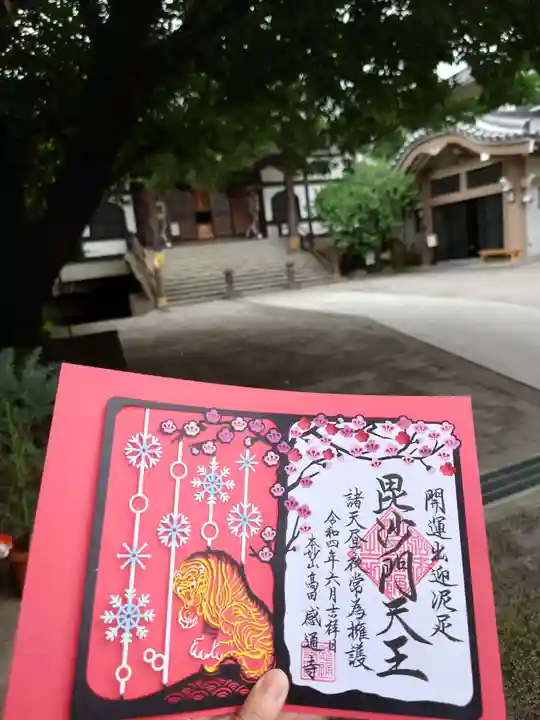 開運出迎毘沙門天王
諸天昼夜常為擁護
令和四年六月吉祥日
本妙山高田感通寺